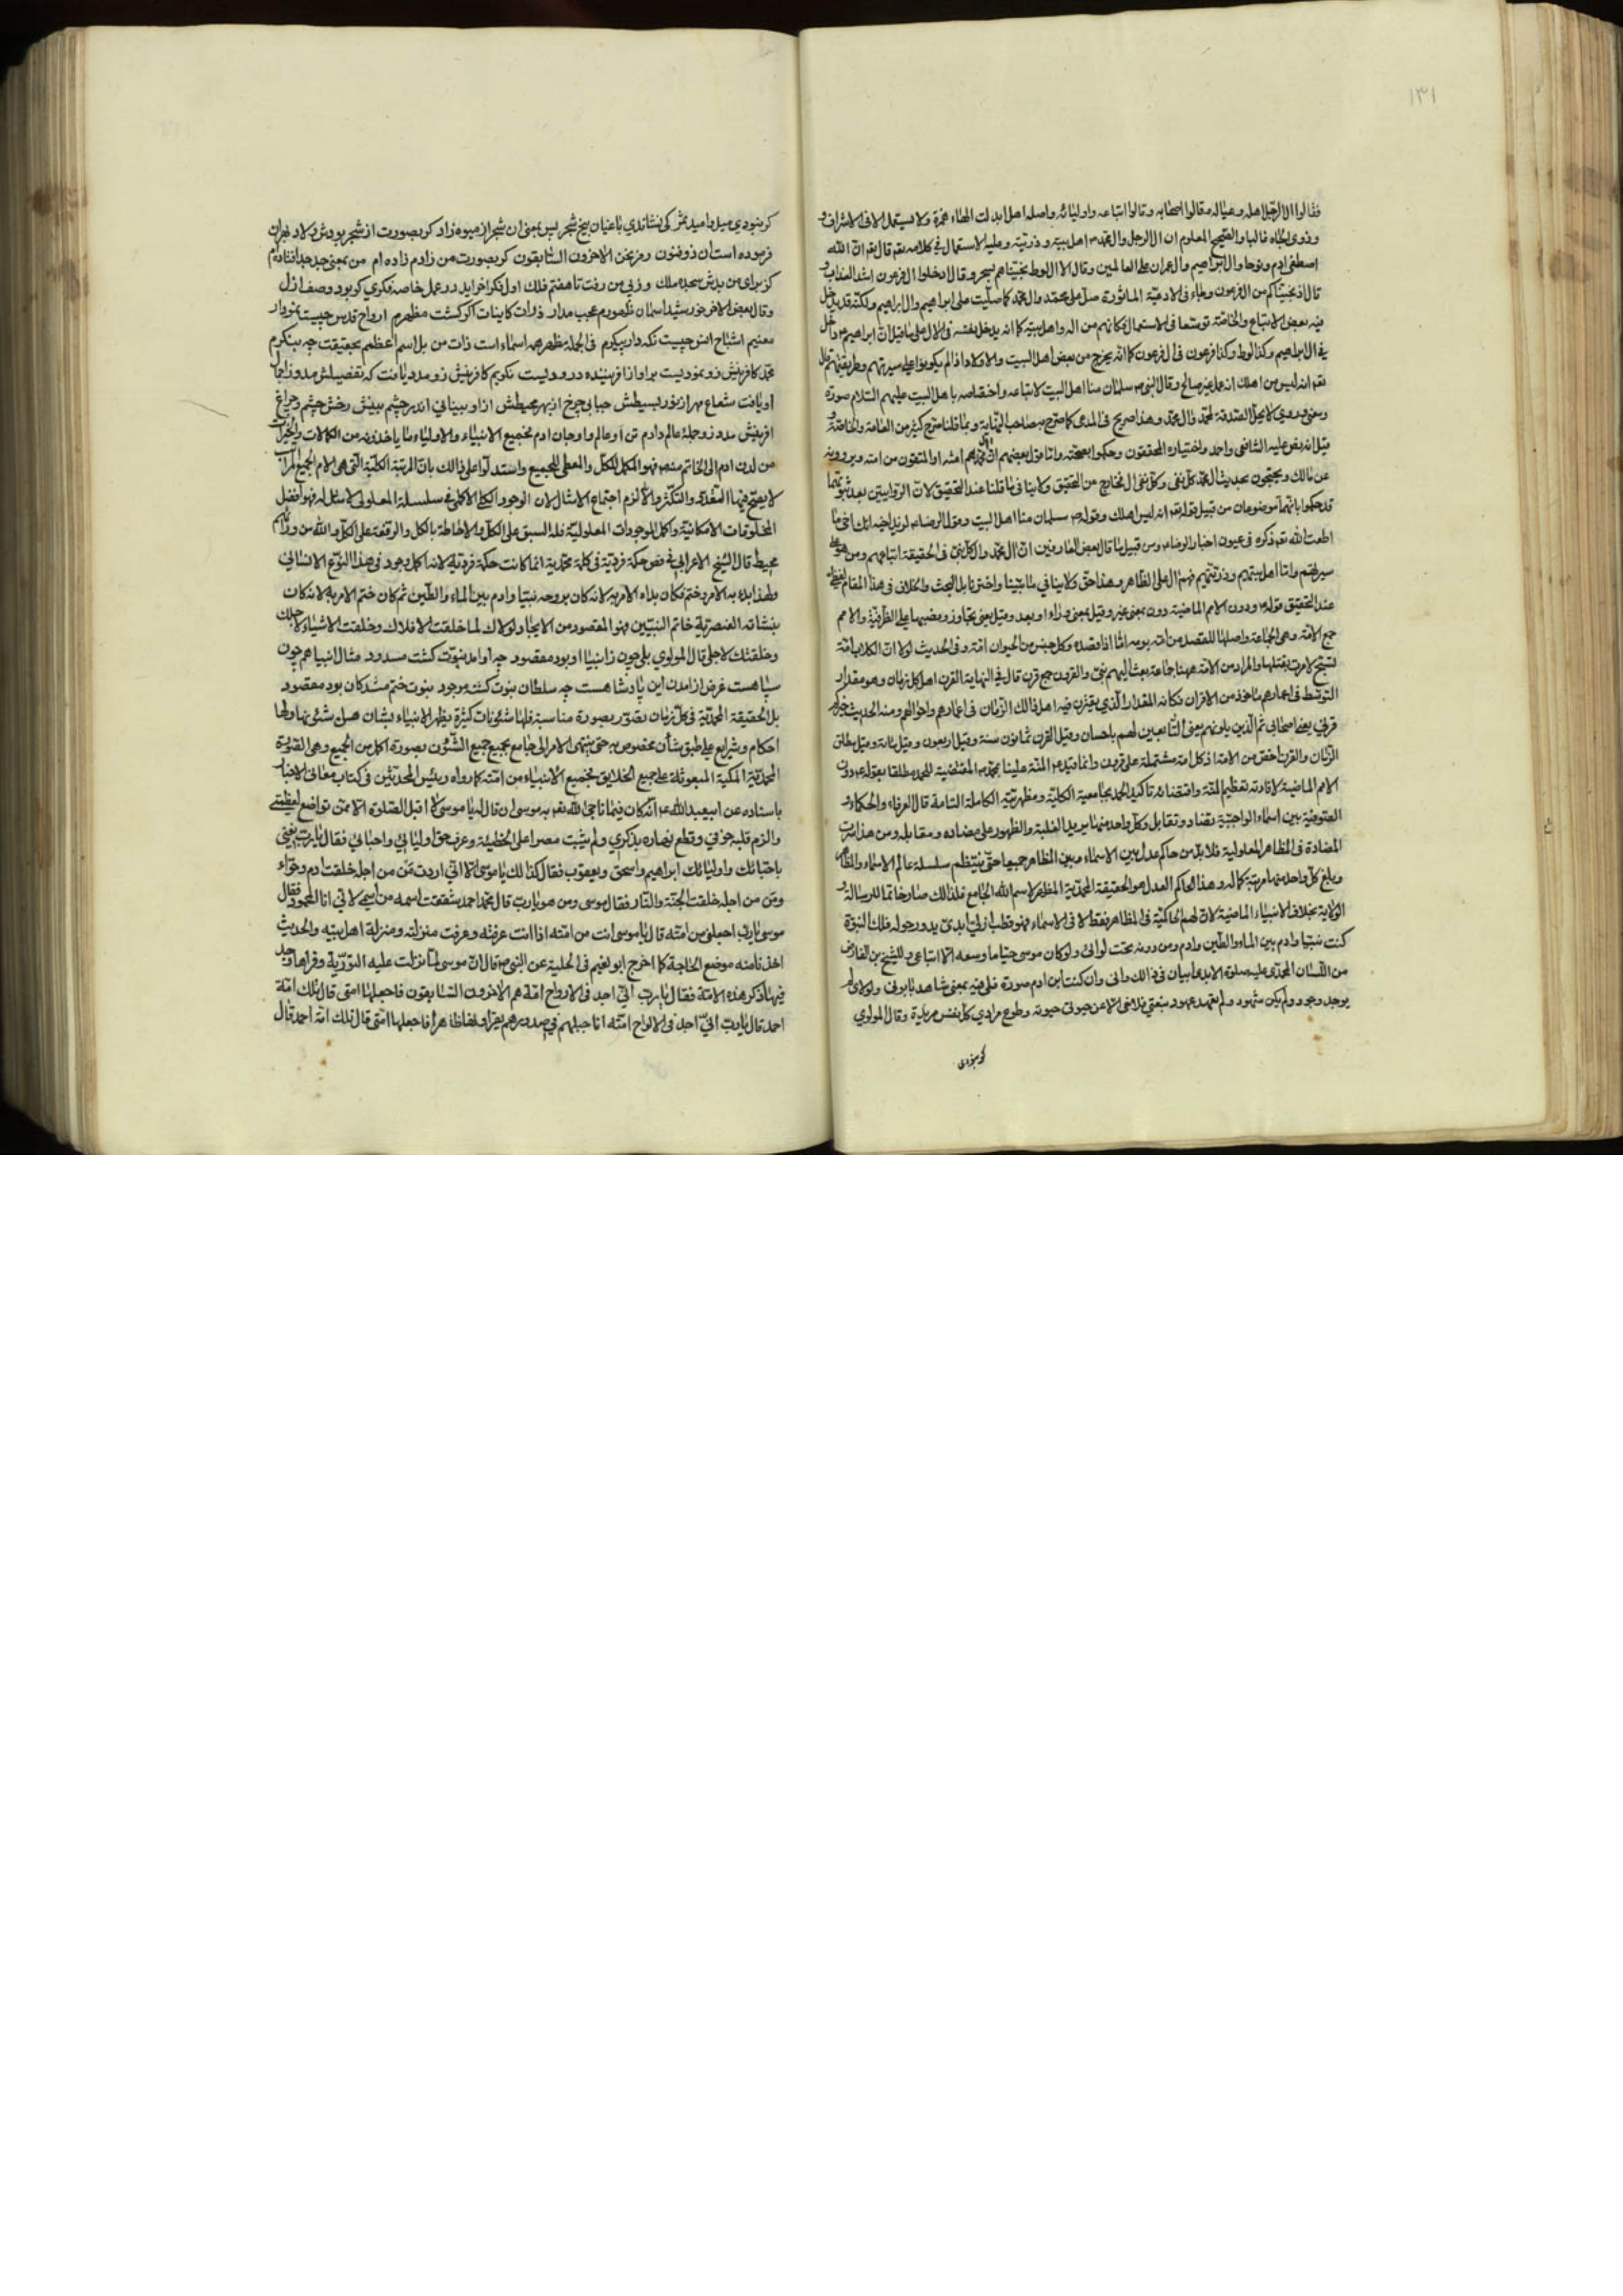 ١٣١
فقالوا ال الرجل اهله وعياله وقالوا اصحابه وقالوا اتباعه واوليائه واصله اهل ابدلت الهاء همزة ولا يستعمل الا فى الاشراف و
وذوى الجاه غالبا والصحيح المعلوم ان ال الرجل وال محمد ص اهل بيته وذريته وعليه الاستعمال فى كلامه تعه قال تعه ان الله
اصطفى ادم ونوحا وال ابراهيم وال عمران على العالمين وقال الا ال لوط نجيناهم بسحر وقال ادخلوا ال فرعون اشد العذاب و
قال اذ نجيناكم من ال فرعون وجاء فى الادعية الماثورة صل على محمد وال محمد كما صليت على ابراهيم وال ابراهيم ولكنه قد يدخل
فيه بعض الاتباع والخاصة توسعا فى الاستعمال فكانهم من اله واهل بيته كما انه يدخل نفسه فى الال على ما قيل ان ابراهيم ع داخل
فى ال ابراهيم وكذا لوط وكذا فرعون فى ال فرعون كما انه يخرج من بعض اهل البيت والاولاد اذا لم يكونوا على سيرتهم وطريقتهم قال
تعه انه ليس من اهلك انه عمل غير صالح وقال النبى ص سلمان منا اهل البيت لاتباعه واختصاصه باهل البيت عليهم السلام صورة
ومعنى وروى لا يحل الصدقة لمحمد وال محمد وهذا صريح فى المدعى كما صرح به صاحب النهاية وبما قلنا صرح كثير من العامة والخاصة و
قيل انه نص عليه الشافعى واحمد واختياره المحققون وحكموا بصحته واما قول بعضهم ان ال محمد هم امته او المتقون من امته ويروونه
عن مالك ويحتجون بحديث ال محمد كل تقى وكل تقى ال فخارج من التحقيق ولا ينافى ما قلنا عند التحقيق لان الروايتين بعد ثبوتهما
قد حكموا بانهما موضوعان من قبيل قوله تعه انه ليس اهلك وقوله ص سلمان منا اهل البيت وقول الرضا ع لزيد اخيه انك اخى ما
اطعت الله تعه ذكره فى عيون اخبار الرضا ع ومن قبيل ما قال بعض العارفين ان ال محمد وال كل نبى فى الحقيقة اتباعهم ومن هو على
سيرتهم واما اهل بيتهم وذريتهم فهم ال على الظاهر وهذا حق ولا ينافى ما بينا واخترنا بل البحث والخلاف فى هذا المقام لفظى
عند التحقيق قوله ع دون الامم الماضية دون بمعنى غير وقيل بمعنى وراء او بعد وقيل بمعنى تجاوز ونصبها على الظرفية والامم
جمع الامة وهى الجماعة واصلها للقصد من امه يومه اما اذا قصده وكل جنس من الحيوان امة وفى الحديث لولا ان الكلاب امة
تسبح لامرت بقتلها والمراد من الامة ههنا جماعة بعث اليهم نبى والقرون جمع قرن قال فى النهاية القرن اهل كل زمان وهو مقدار
التوسط فى اعمارهم ماخوذ من الاقران فكانه المقدار الذى يقترن فيه اهل ذالك الزمان فى اعمارهم واحوالهم ومنه الحديث خيركم
قرنى يعنى اصحابى ثم الذين يلونهم يعنى التابعين لهم باحسان وقيل القرن ثمانون سنة وقيل اربعون وقيل مائة وقيل مطلق
الزمان والقرن اخص من الامة اذ كل امة مشتملة على قرون وانما قيد ع المنة علينا بمحمد ص المقتضية للحمد مطلقا بقوله ع دون
الامم الماضية لافادته تعظيم المنة واقتضائه تاكيد الحمد بجامعية الكلية ومظهريته الكاملة التامة قال العرفاء والحكماء
الصوفية بين اسماء الواجبية تضاد وتقابل وكل واحد منهما يريد الغلبة والظهور على مضاده ومقابله ومن هذا سرت
المضادة فى المظاهر المعلولية فلا بد من حاكم عدل بين الاسماء وبين المظاهر جميعا حتى ينتظم سلسلة عالم الاسماء والمظاهر
ويبلغ كل واحد منهما مرتبة كماله وهذا الحاكم العدل هو الحقيقة المحمدية المظهر لاسم الله الجامع فلذالك صار خاتما للرسالة و
الولاية بخلاف الانبياء الماضية لان لهم الحاكمية فى المظاهر فقط لا فى الاسماء فهو قطب ازلى ابدى يدور حوله فلك النبوة
كنت نبيا وادم بين الماء والطين وادم ومن دونه تحت لوائى ولو كان موسى حيا ما وسعه الا اتباعى وللشيخ بن الفارض
من اللسان المحمدى عليه صلوة الابدى بيان فى ذالك وانى وان كنت ابن ادم صورة فلى فيه بمعنى شاهد بابوتى ولولاى لم
يوجد وجود ولم يكن شهود ولم تعهد عهود بذمتى فلا حى الا عن حيوتى حيوته وطوع مرادى كل نفس مريدة وقال المولوى
كر نبودى
كر نبودى ميل واميد ثمر كى نشاندى باغبان بيخ شجر پس بمعنى ان شجر از ميوه زاد كر بصورت از شجر بودش ولاد بهر ان
فرموده است ان ذو فنون رمز نحن الاخرون السابقون كر بصورت من زادم زاده ام من بمعنى جد جد افتاده ام
كز براى من بدش سجده ملك وزپى من رفت تا هفتم فلك اول فكر اخر ايد در عمل خاصه فكرى كو بود وصف ازل
وقال بعض الاخر خورشيد اسمان ظهورم عجب مدار ذرات كاينات اكر كشت مظهرم ارواح قدس چيست نمودار
معنيم اشباح انس چيست نكه دار پيكرم فى الجملة مظهر همه اسماء است ذات من بل اسم اعظمم بحقيقت چه بنكرم
محمد كافرينش زو نموديست براو از افريننده دروديست نكويم كافرينش زو مدد يافت كه تفصيلش مدد ز اجمال
او يافت شعاع مهر از نور بسيطش حبابى چرخ از بهر محيطش ازاو بينائى اندر چشم بينش رخش چشم وچراغ
افرينش مدد زو جملهٔ عالم دادم تن او عالم واو جان ادم فجميع الانبياء والاولياء ما ياخذونه من الكمالات والخيرات
من لدن ادم الى الخاتم منه ص فهو المكمل للكل والمعطى للجميع واستدلوا على ذالك بان المرتبة الكلية التى هى الام لجميع المراتب
لا يصح فيها التعدد والتكثر والا لزم اجتماع الامثال لان الوجود الكلى الاكمل فى سلسلة المعلولى لا مثل له فهو افضل
المخلوقات الامكانية واكمل الموجودات المعلولية فله السبق على الكل والاحاطة بالكل والرفعة على الكل والله من ورائهم
محيط قال الشيخ الاعرابى فى فص حكمة فردية فى كلمة محمدية انما كانت حكمة فردية لانه اكمل وجود فى هذا النوع الانسانى
ولهذا بدء به الامر وختم فكان بداه الامر به لانه كان بروحه نبيا وادم بين الماء والطين ثم كان ختم الامر به لانه كان
بنشاته العنصرية خاتم النبيين فهو المقصود من الايجاد لولاك لما خلقت الافلاك وخلقت الاشياء لاجلك
وخلقتك لاجلى قال المولوى بلى چون ز انبيا او بود مقصود چه او امد نبوت كشت مسدود مثال انبيا هم چون
سپاهست غرض از امدن اين پادشاهست چه سلطان نبوت كشت موجود نبوت ختم شد كان بود مقصود
بل الحقيقة المحمدية فى كل زمان تصور بصورة مناسبة فلها شئونات كثيرة يظهر الانبياء بشان هى شئونها ولها
احكام وشرايع على طبق شان مخصوص به حتى ينتهى الامر الى جامع بجميع جميع الشئون بصورة اكمل من الجميع وهى الصورة
المحمدية المكية المبعوثة على جميع الخلايق فجميع الانبياء من امته كما رواه رئيس المحدثين فى كتاب معانى الاخبار
باسناده عن ابيعبد الله ع انه كان فيما ناجى الله تعه به موسى ان قال له يا موسى لا اقبل الصلوة الا ممن تواضع لعظمتى
والزم قلبه خوفى وقطع نهاره بذكرى ولم يبت مصرا على الخطيئة وعرف حق اوليائى واحبائى فقال يا رب تعنى
باحبائك واوليائك ابراهيم واسحق ويعقوب فقال كذالك يا موسى الا انى اردت من من اجله خلقت ادم وحواء
ومن من اجله خلقت الجنة والنار فقال موسى ومن هو يا رب قال محمد احمد شققت اسمه من اسمى لانى انا المحمود فقال
موسى يا رب اجعلنى من امته قال يا موسى انت من امته اذا انت عرفته وعرفت منزلته ومنزلة اهل بيته والحديث
اخذنا منه موضع الحاجة كما اخرج ابو نعيم فى الحلية عن النبى ص قال ان موسى لما نزلت عليه التورية وقراها وجد
فيها ذكر هذه الامة فقال يا رب انى اجد فى الالواح امة هم الاخرون السابقون فاجعلها امتى قال تلك امة
احمد قال يا رب انى اجد فى الالواح امته اناجيلهم فى صدورهم يقراونها ظاهرا فاجعلها امتى قال تلك امة احمد قال